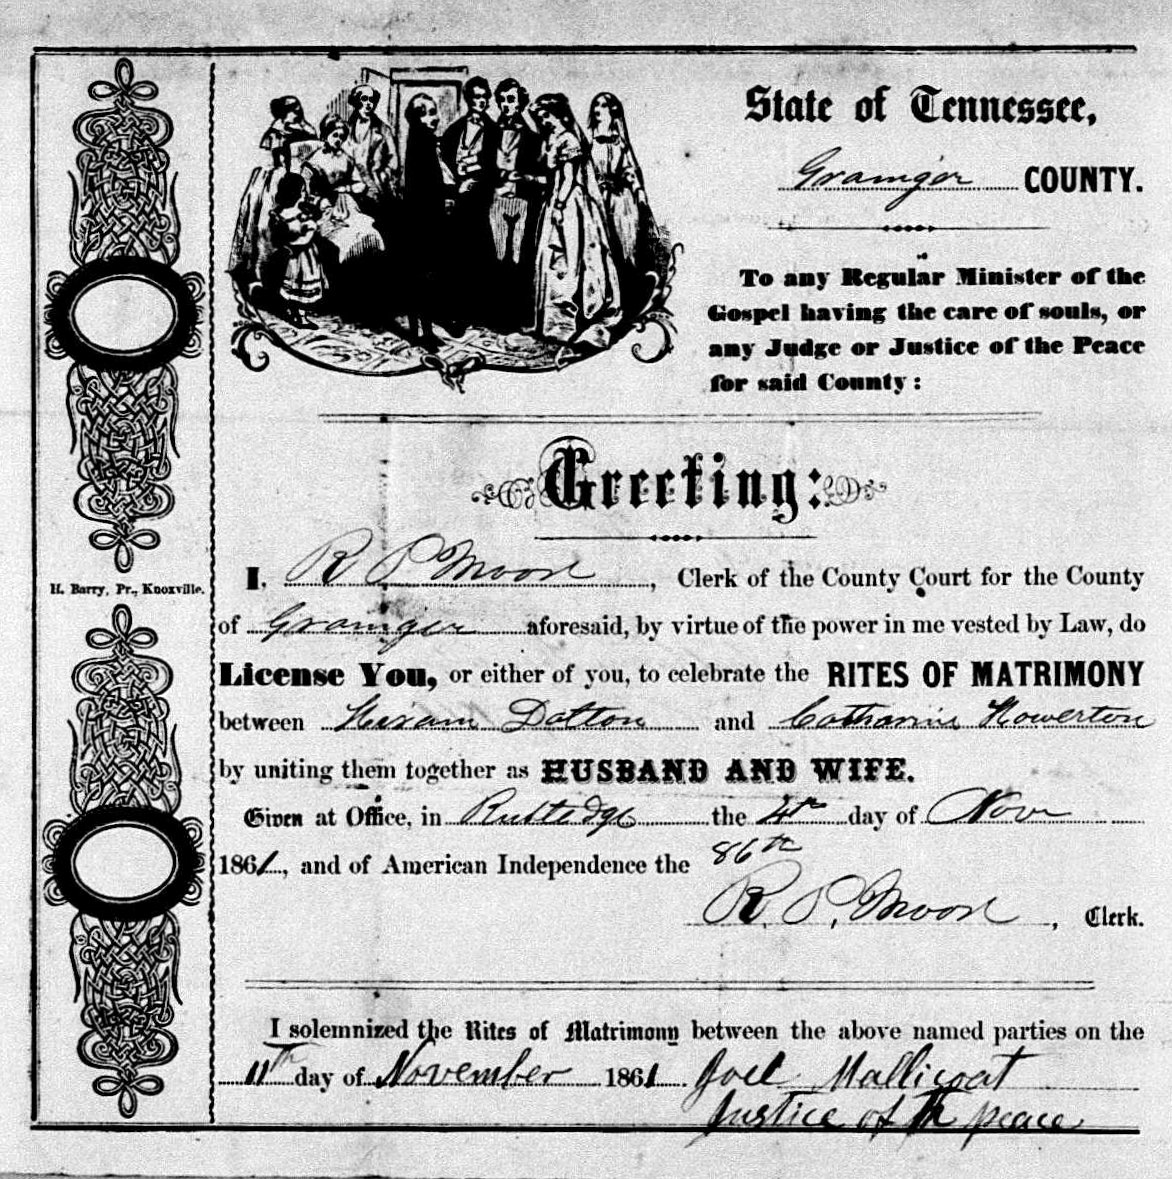 State of Tennessee,
Grainger COUNTY.
To any Regular Minister of the
Gospel having the care of souls, or
any Judge or Justice of the Peace
for said County:
Greeting:
I, R P Moore, Clerk of the County Court for the County
of Grainger aforesaid, by virtue of the power in me vested by Law, do
License You, or either of you, to celebrate the RITES OF MATRIMONY
between Hiram Dotton and Catharine Howerton
by uniting them together as HUSBAND AND WIFE.
Given at Office, in Rutledge the 4th day of Nov
1861, and of American Independence the 86th
R. P. Moore, Clerk.
I solemnized the Rites of Matrimony between the above named parties on the
11th day of November 1861 Joel Mallicoat
Justice of the peace
H. Barry, Pr., Knoxville.